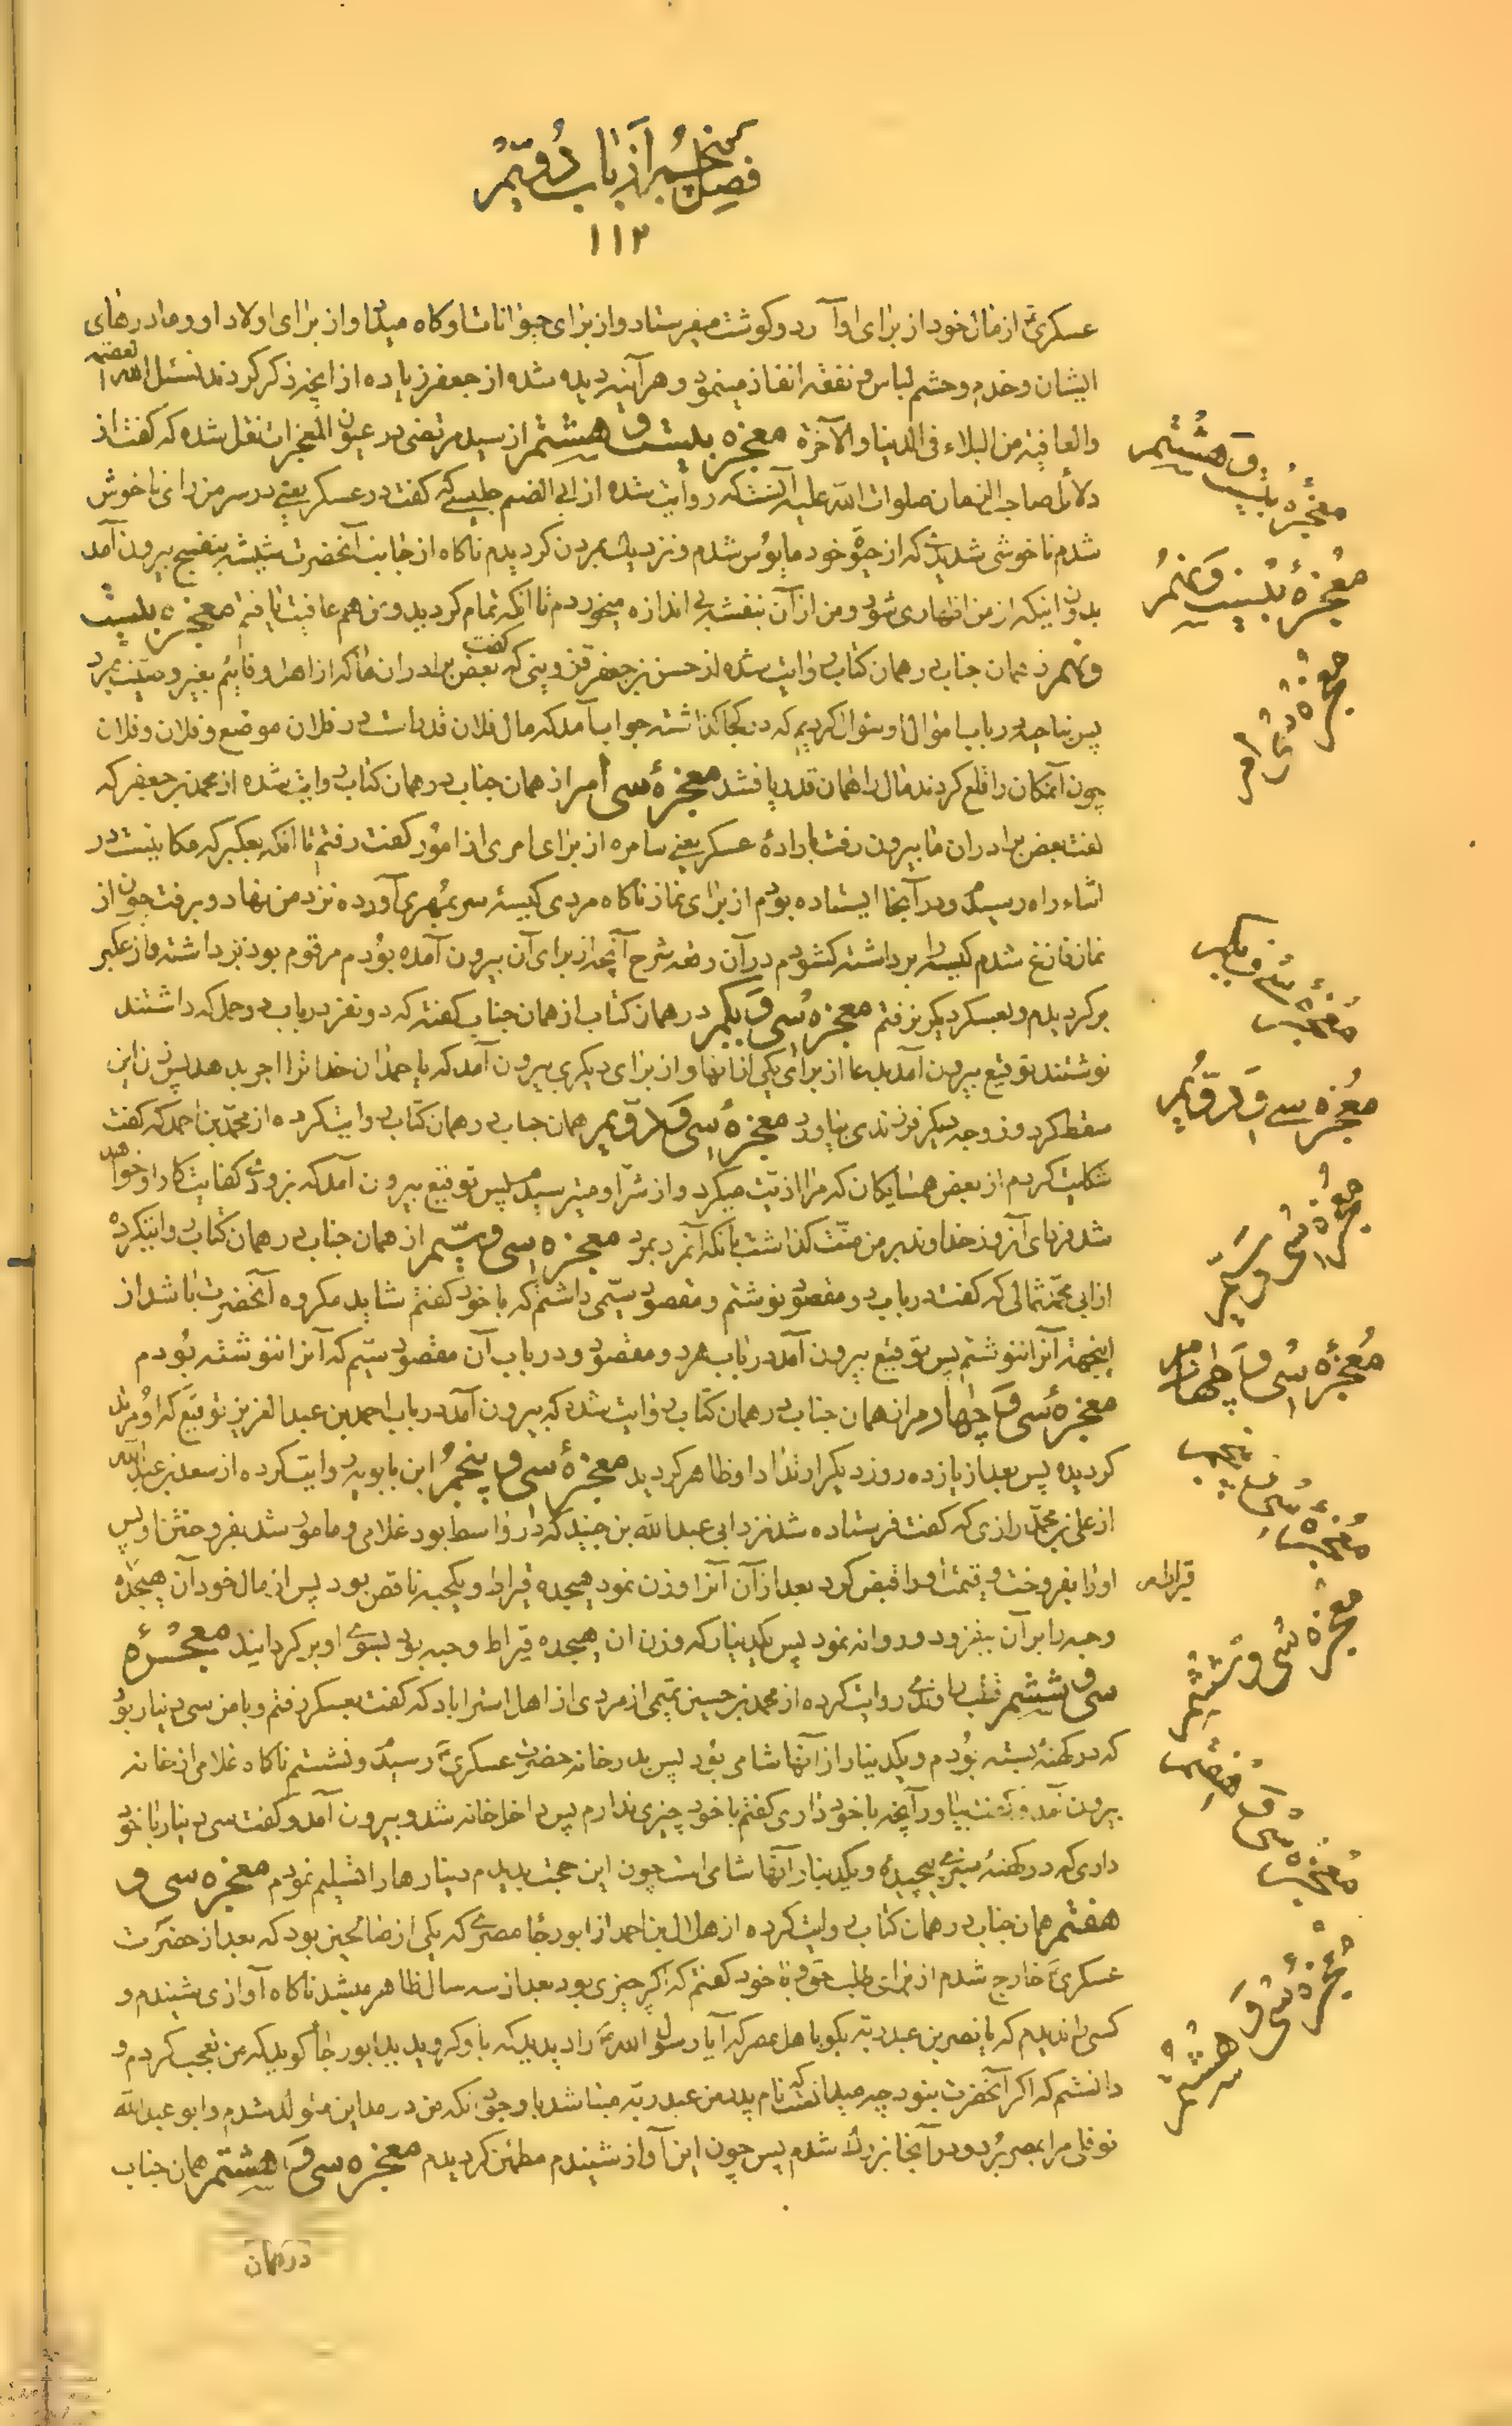 فصل پنجم از باب دویم
۱۱۳
عسکری از مال خود از برای او آرد و گوشت میفرستاد و از برای حیوانات او کاه میداد و از برای اولاد او و مادرهای
ایشان و خدم و حشم لباس و نفقه انفاذ مینمود و هر آینه دیده شده از جعفر زیاده از آنچه ذکر کردند نسئل الله العصمة
والعافیة من البلاء فی الدنیا والآخرة معجزه بیست و هشتم از سید مرتضی در عیون المعجزات نقل شده که گفت از
دلائل صاحب الزمان صلوات الله علیه آنست که روایت شده از ابی القسم جلیسی که گفت در عسکر یعنی در سر من رای ناخوش
شدم ناخوشی شدیدی که از حیوة خود مأیوس شدم و نزدیک بمردن گردیدم ناگاه از جانب آنحضرت شیشه بنفسج بیرون آمد
بدون اینکه از من اظهاری شود و من از آن بنفشه بی اندازه میخوردم تا آنکه تمام گردید و من هم عافیت یافتم معجزه بیست
و نهم از همان جناب در همان کتاب روایت شده از حسن بن جعفر قزوینی که گفت بعض برادران ما که از اهل فائیم بغیر وصیت بمرد
پس بناحیه در باب اموال او سؤال کردیم که در کجا گذاشته جواب آمد که مال فلان قدر است در فلان موضع و فلان و فلان
چون آنمکان را قلع کردند مال را همان قدر یافتند معجزهٔ سی ام از همان جناب در همان کتاب روایت شده از محمد بن جعفر که
گفت بعض برادران ما بیرون رفت بارادهٔ عسکر یعنی سامره از برای امری از امور گفت رفتم تا آنکه بعکبر که مکانیست در
اثناء راه رسیدم و در آنجا ایستاده بودم از برای نماز ناگاه مردی کیسهٔ سر بمهری آورده نزد من نهاد و برفت چون از
نماز فارغ شدم کیسه را برداشته گشودم در آن رقعه شرح آنچه از برای آن بیرون آمده بودم مرقوم بود برداشته و از عکبر
برگردیدم و بعسکر دیگر نرفتم معجزه سی و یکم در همان کتاب از همان جناب گفته که دو نفر در باب دو حمل که داشتند
نوشتند توقیع بیرون آمد بدعا از برای یکی از آنها و از برای دیگری بیرون آمد که یا حمدان خدا ترا اجر بدهد پس زن این
سقط کرد و زوجه دیگر فرزندی بیاورد معجزهٔ سی و دویم همان جناب در همان کتاب روایت کرده از محمد بن احمد که گفت
شکایت کردم از بعض همسایگان که مرا اذیت میکرد و از شر او میترسیدم پس توقیع بیرون آمد که بزودی کفایت کار او خواهد
شد فردای آنروز خداوند بر من منت گذاشت بآنکه آنمرد بمرد معجزه سی و سیم از همان جناب در همان کتاب روایت کرده
از ابی محمد ثمالی که گفت در باب دو مقصود نوشتم و مقصود سیمی داشتم که با خود گفتم شاید مکروه آنحضرت باشد از
اینجهة آنرا ننوشتم پس توقیع بیرون آمد در باب هر دو مقصود و در باب آن مقصود سیم که آنرا ننوشته بودم
معجزهٔ سی و چهارم از همان جناب در همان کتاب روایت شده که بیرون آمد در باب احمد بن عبد العزیز توقیع که او مرتد
گردیده پس بعد از یازده روز دیگر ارتداد او ظاهر گردید معجزهٔ سی و پنجم ابن بابویه روایت کرده از سعد بن عبدالله
از علی بن محمد رازی که گفت فرستاده شد نزد ابی عبد الله بن جنید که در واسط بود غلامی و مامور شد بفروختن او پس
او را بفروخت و قیمت او را قبض کرد بعد از آن آنرا وزن نمود هیجده قیراط و یکحبه ناقص بود پس از مال خود آن هیجده قیراط
و حبه را بر آن بیفزود و روانه نمود پس یکدینار که وزن آن هیجده قیراط و حبه بود بسوی او برگردانید معجزهٔ
سی و ششم قطب راوندی روایت کرده از محمد بن حسین تمیمی از مردی از اهل استراباد که گفت بعسکر رفتم و با من سی دینار بود
که در کهنهٔ بسته بودم و یکدینار از آنها شامی بود پس بدر خانه حضرت عسکری رسیدم و نشستم ناگاه غلامی از خانه
بیرون آمد و گفت بیاور آنچه با خود داری گفتم با خود چیزی ندارم پس داخل خانه شد و بیرون آمد و گفت سی دینار با خود
داری که در کهنهٔ سبزی پیچیده و یکدینار آنها شامی است چون این حجت بدیدم دینارها را تسلیم نمودم معجزه سی و
هفتم همان جناب در همان کتاب روایت کرده از هلال بن احمد از ابو رجا مصری که یکی از صالحین بود که بعد از حضرت
عسکری خارج شدم از برای طلب حق و با خود گفتم که اگر چیزی بود بعد از سه سال ظاهر میشد ناگاه آوازی شنیدم و
کسی را ندیدم که یا نصر بن عبد ربه بگو باهل مصر که آیا رسول الله را دیدید که باو گرویدید ابو رجا گوید که من تعجب کردم و
دانستم که اگر آنحضرت بنود چه میدانست که نام پدر من عبد ربه میباشد با وجود آنکه من در مداین متولد شدم و ابو عبد الله
نوفلی مرا بمصر برد و در آنجا بزرگ شدم پس چون این آواز شنیدم مطمئن گردیدم معجزه سی و هشتم همان جناب
در همان
معجزه بیست و هشتم
معجزهٔ بیست و نهم
معجزهٔ سی ام
معجزهٔ سی و یکم
معجزه سی و دویم
معجزهٔ سی و سیم
معجزهٔ سی و چهارم
معجزهٔ سی و پنجم
قیراط
معجزه سی و ششم
معجزه سی و هفتم
معجزهٔ سی و هشتم